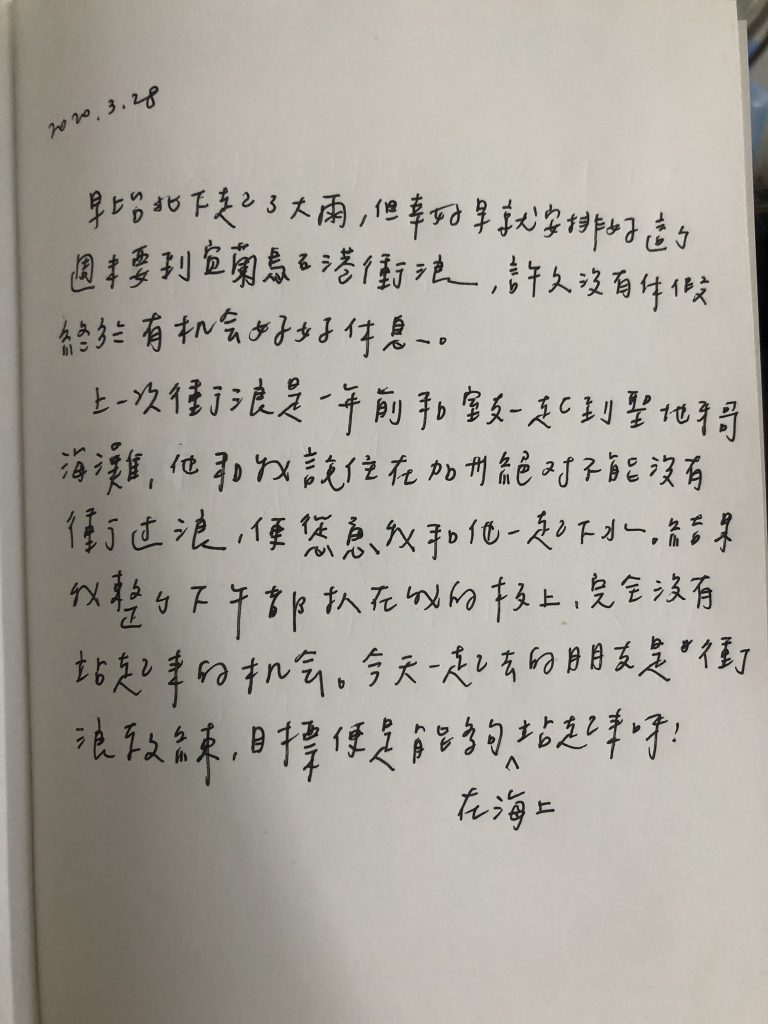 2020.3.28
早上台北下起了大雨,但幸好早就安排好這个
週末要到宜蘭烏石港衝浪,許久沒有休假
終於有机会好好休息。
上一次衝浪是一年前和室友一起到聖地牙哥
海灘,他和我說住在加州絕对不能沒有
衝过浪,便慫恿我和他一起下水。結果
我整个下午都趴在我的板上,完全沒有
站起來的机会。今天一起去的朋友是衝
浪教練,目標便是能夠站起來呀!
在海上